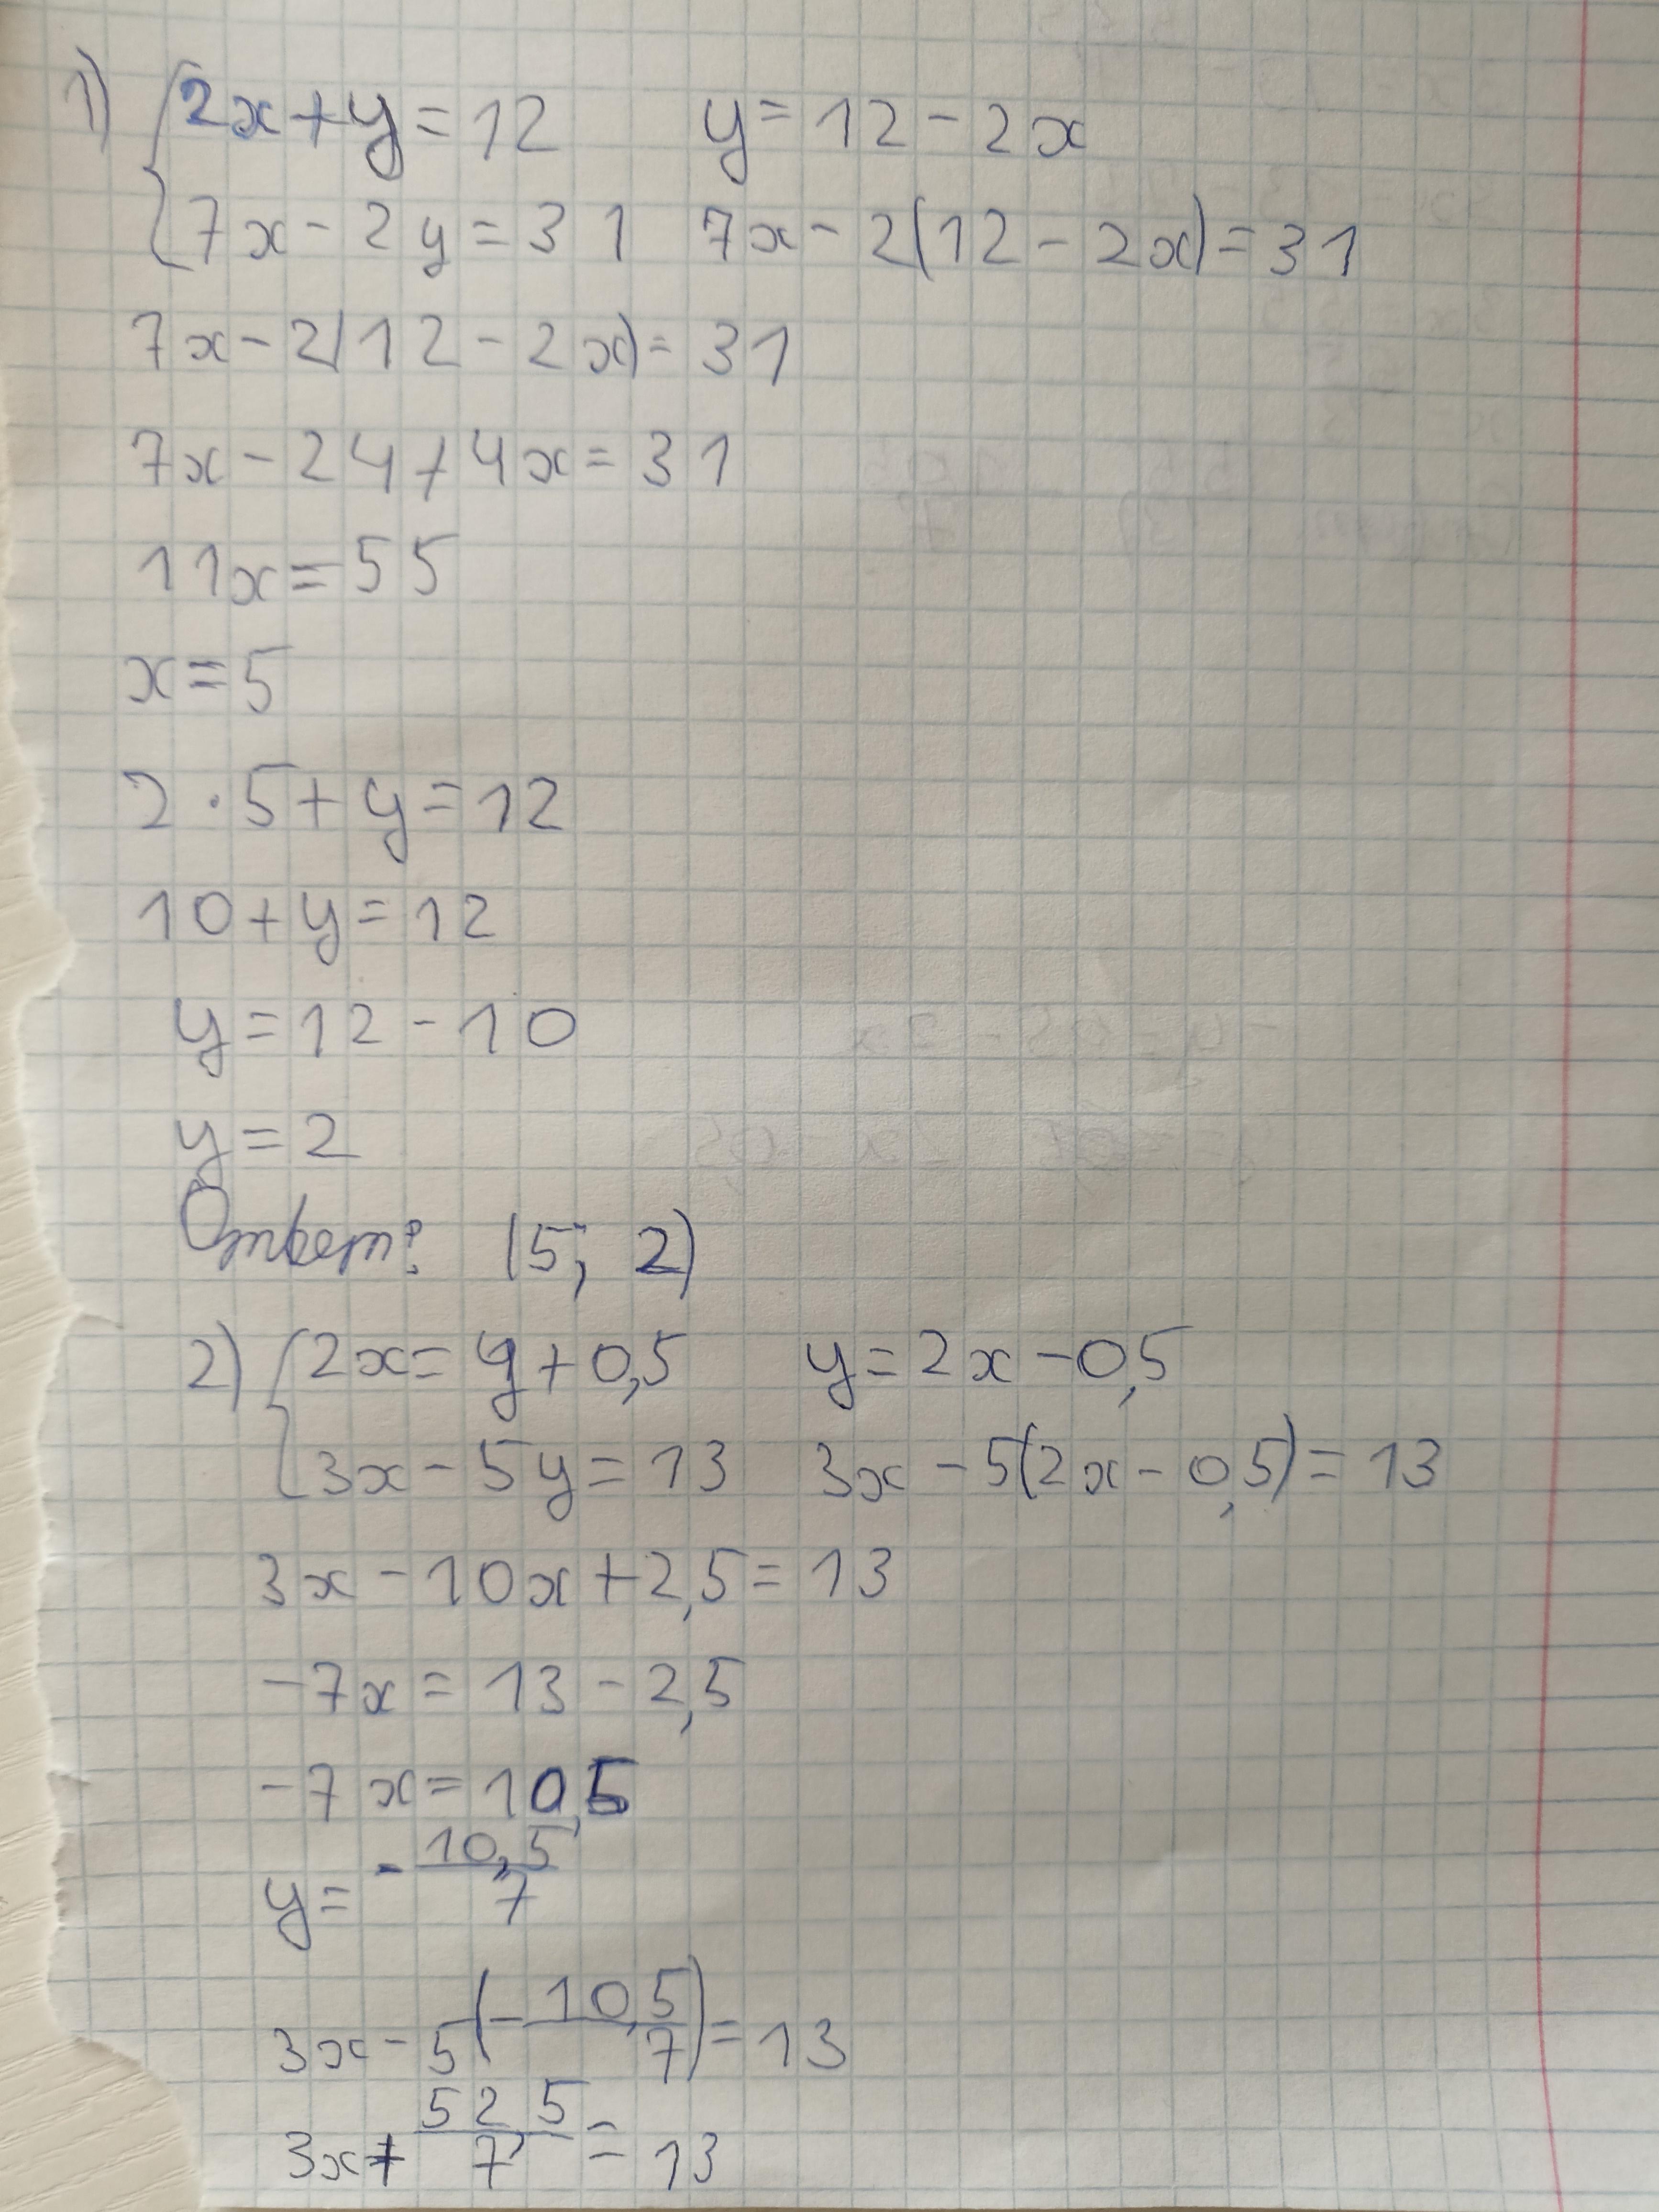 1) { 2x+y=12 y=12-2x
7x-2y=31 7x-2(12-2x)=31
7x-2(12-2x)=31
7x-24+4x=31
11x=55
x=5
2·5+y=12
10+y=12
y=12-10
y=2
Ответ: (5; 2)
2) { 2x=y+0,5 y=2x-0,5
3x-5y=13 3x-5(2x-0,5)=13
3x-10x+2,5=13
-7x=13-2,5
-7x=10,5
y=-10,5/7
3x-5(-10,5/7)=13
3x+52,5/7=13